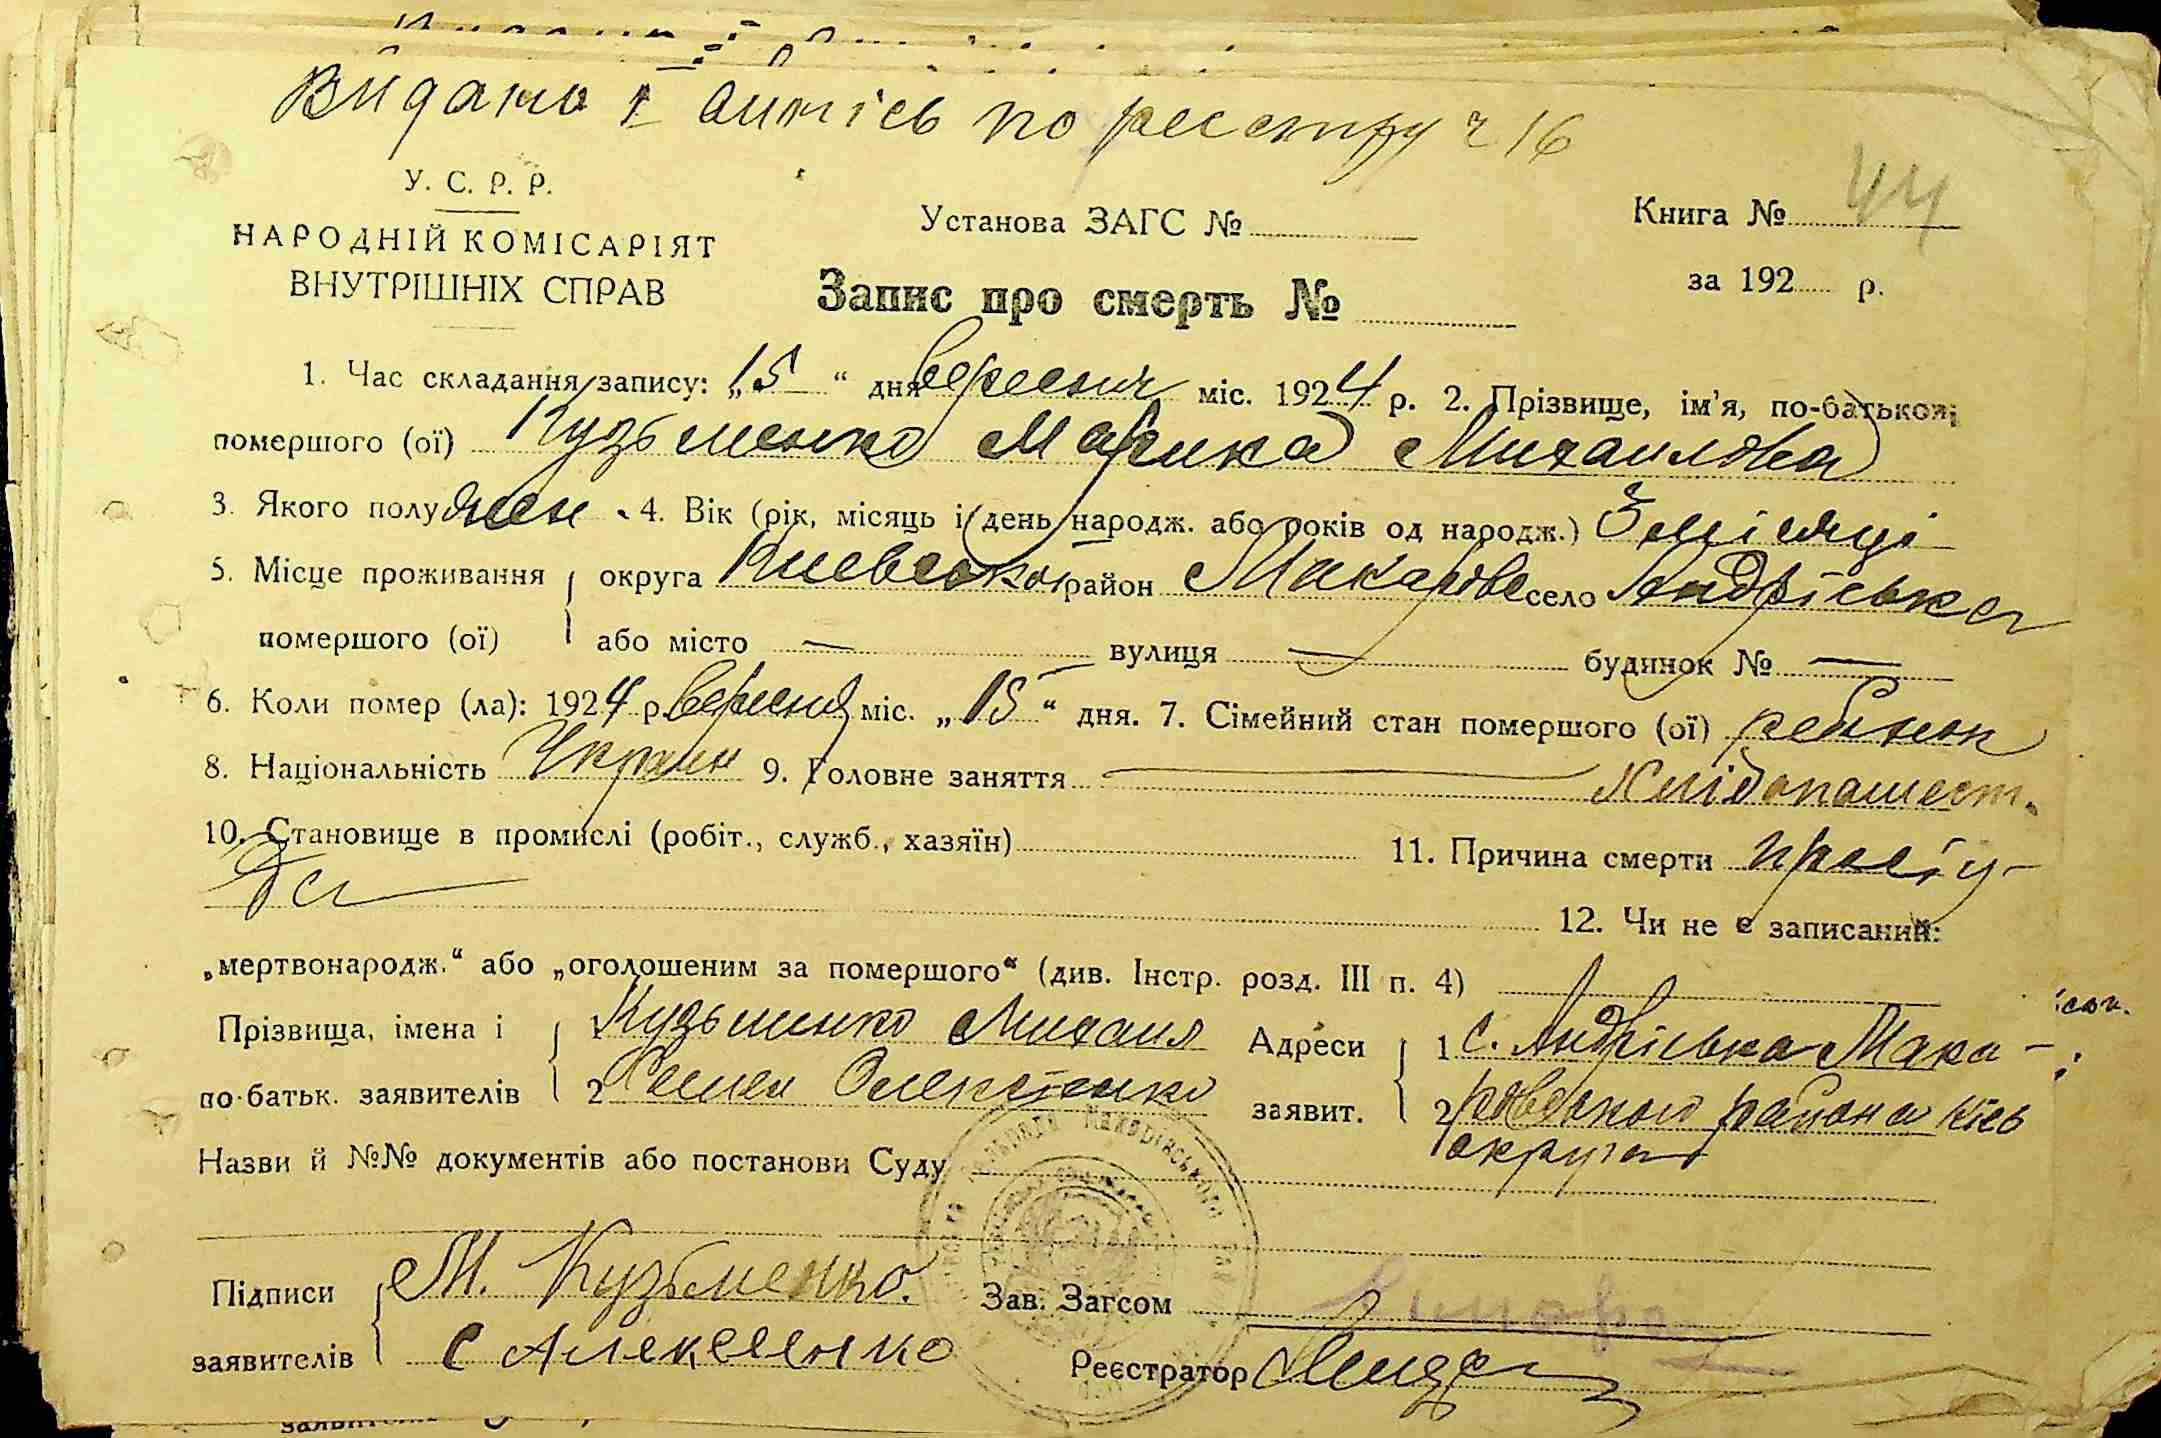 Видано II витісь по реєстру ч 16
У. С. Р. Р.
НАРОДНІЙ КОМІСАРІЯТ
ВНУТРІШНІХ СПРАВ
Установа ЗАГС №
Книга № 44
за 192 р.
Запис про смерть №
1. Час складання запису: „15" дня вересня міс. 1924 р. 2. Прізвище, ім'я, по-батькові
помершого (ої) Кузьменко Марика Михаилова
3. Якого полу жен. 4. Вік (рік, місяць і день народж. або років од народж.) 3 місяці
5. Місце проживання округа Киевської район Макарівс село Андріївка
помершого (ої) або місто — вулиця — будинок № —
6. Коли помер (ла): 1924 р. вересня міс. „15" дня. 7. Сімейний стан помершого (ої) ребенок
8. Національність Украин 9. Головне заняття — Хлібопашест.
10. Становище в промислі (робіт., служб., хазяїн) 11. Причина смерти просту-
да
12. Чи не є записаний:
„мертвонародж." або „оголошеним за помершого" (див. Інстр. розд. III п. 4)
Прізвища, імена і 1 Кузьменко Михаил Адреси 1 с. Андріївка Мака-
по-батьк. заявителів 2 Семен Олексієнко заявит. 2 ровського района Київ
округи
Назви й №№ документів або постанови Суду
Підписи М. Кузьменко. Зав. Загсом
заявителів С Алексеенко Реєстратор